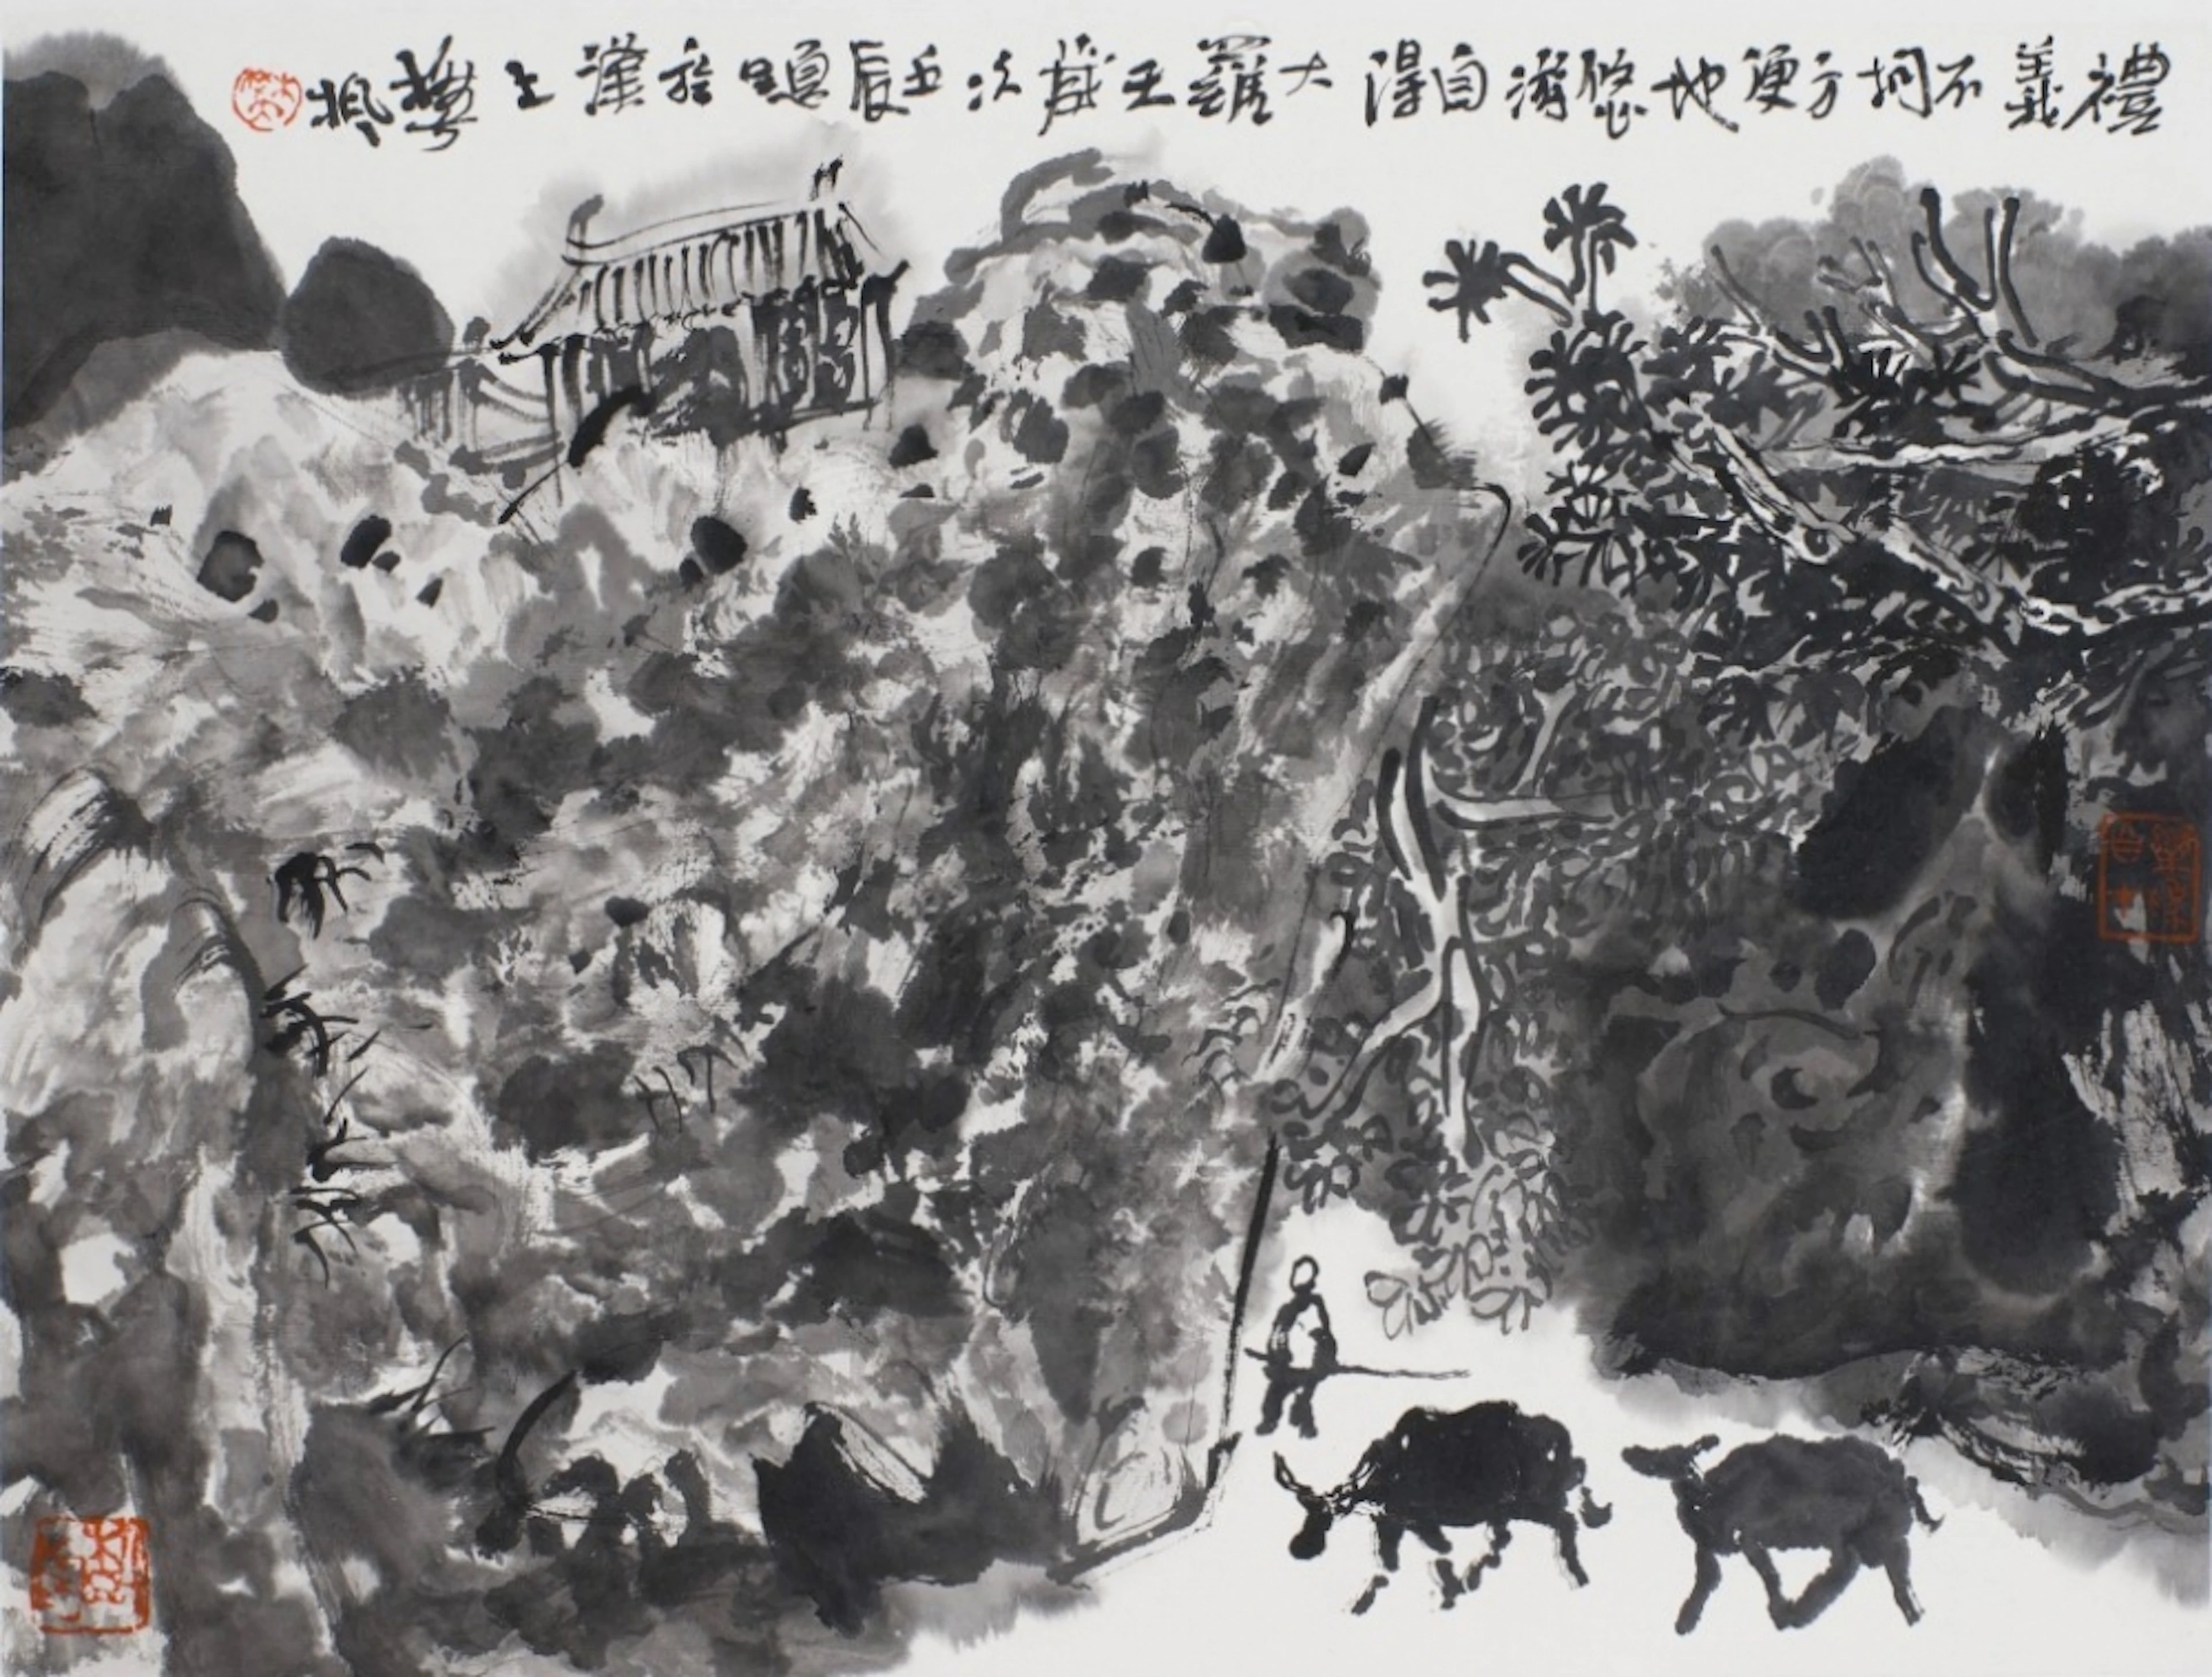 禮義不拘方便地悠游自得大羅天歲次壬辰題於漢上